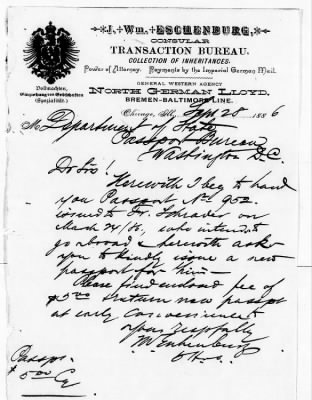 J. Wm. ESCHENBURG,
CONSULAR
TRANSACTION BUREAU.
COLLECTION OF INHERITANCES;
Power of Attorney. Payments by the Imperial German Mail.
GENERAL WESTERN AGENCY
NORTH GERMAN LLOYD,
BREMEN-BALTIMORE LINE.
Vollmachten,
Einziehung von Erbschaften
(Spezialität.)
Chicago, Ills., Sept 28 1886
M Department of State
Passport Bureau
Washington D.C.
Dr Sir!
Herewith I beg to hand
you Passport No 952.
issued to Fr. Schrader on
March 24/86, who intends to
go abroad & herewith asks
you to kindly issue a new
passport for him—
Please find enclosed fee of
$5.00 & return new passpt
at early convenience
Yours respectfully
J W Eschenburg
Passpt.
$5.00